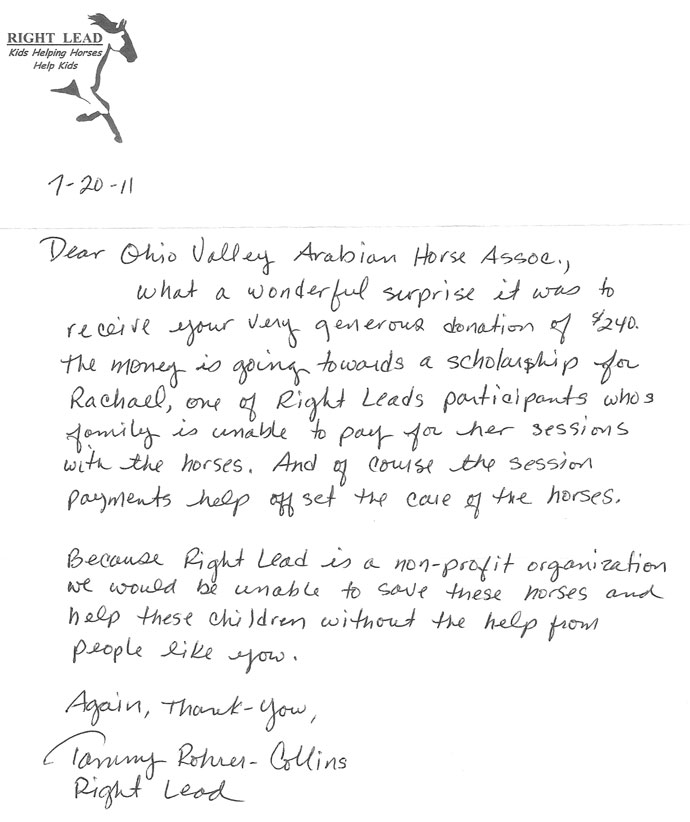 RIGHT LEAD
Kids Helping Horses
Help Kids
7-20-11
Dear Ohio Valley Arabian Horse Assoc.,
what a wonderful surprise it was to
receive your very generous donation of $240.
The money is going towards a scholarship for
Rachael, one of Right Leads participants who's
family is unable to pay for her sessions
with the horses. And of course the session
payments help off set the care of the horses.
Because Right Lead is a non-profit organization
we would be unable to save these horses and
help these children without the help from
people like you.
Again, Thank-You,
Tammy Rohrer-Collins
Right Lead